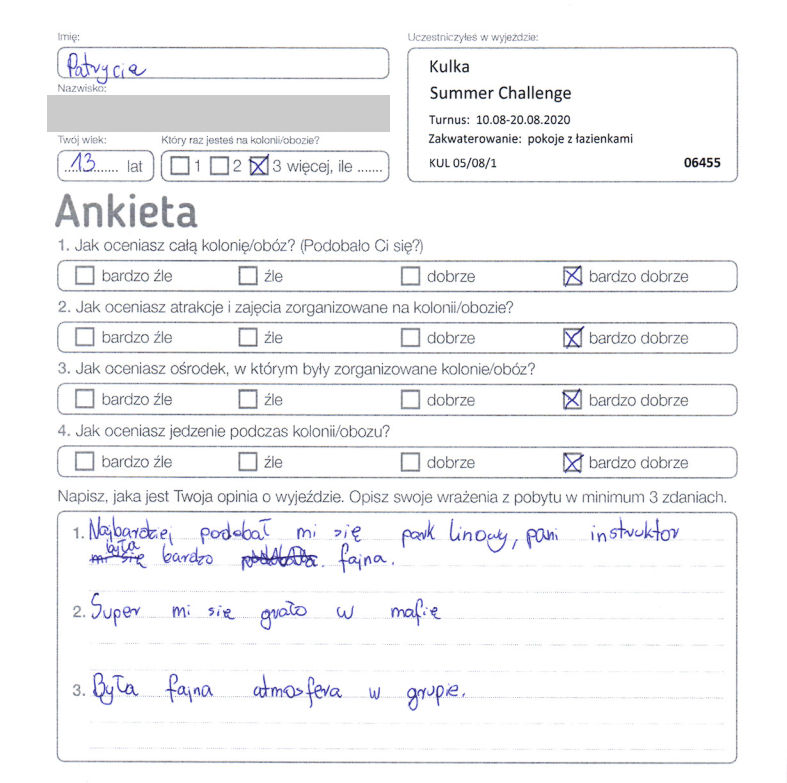 Imię:
Patrycja
Nazwisko:
Twój wiek:
13 lat
Który raz jesteś na kolonii/obozie?
1 2 3 więcej, ile .......
Uczestniczyłeś w wyjeździe:
Kulka
Summer Challenge
Turnus: 10.08-20.08.2020
Zakwaterowanie: pokoje z łazienkami
KUL 05/08/1 06455
Ankieta
1. Jak oceniasz całą kolonię/obóz? (Podobało Ci się?)
bardzo źle źle dobrze bardzo dobrze
2. Jak oceniasz atrakcje i zajęcia zorganizowane na kolonii/obozie?
bardzo źle źle dobrze bardzo dobrze
3. Jak oceniasz ośrodek, w którym były zorganizowane kolonie/obóz?
bardzo źle źle dobrze bardzo dobrze
4. Jak oceniasz jedzenie podczas kolonii/obozu?
bardzo źle źle dobrze bardzo dobrze
Napisz, jaka jest Twoja opinia o wyjeździe. Opisz swoje wrażenia z pobytu w minimum 3 zdaniach.
1. Najbardziej podobał mi się park linowy, pani instruktor
była bardzo fajna.
2. Super mi się grało w mafię
3. Była fajna atmosfera w grupie.